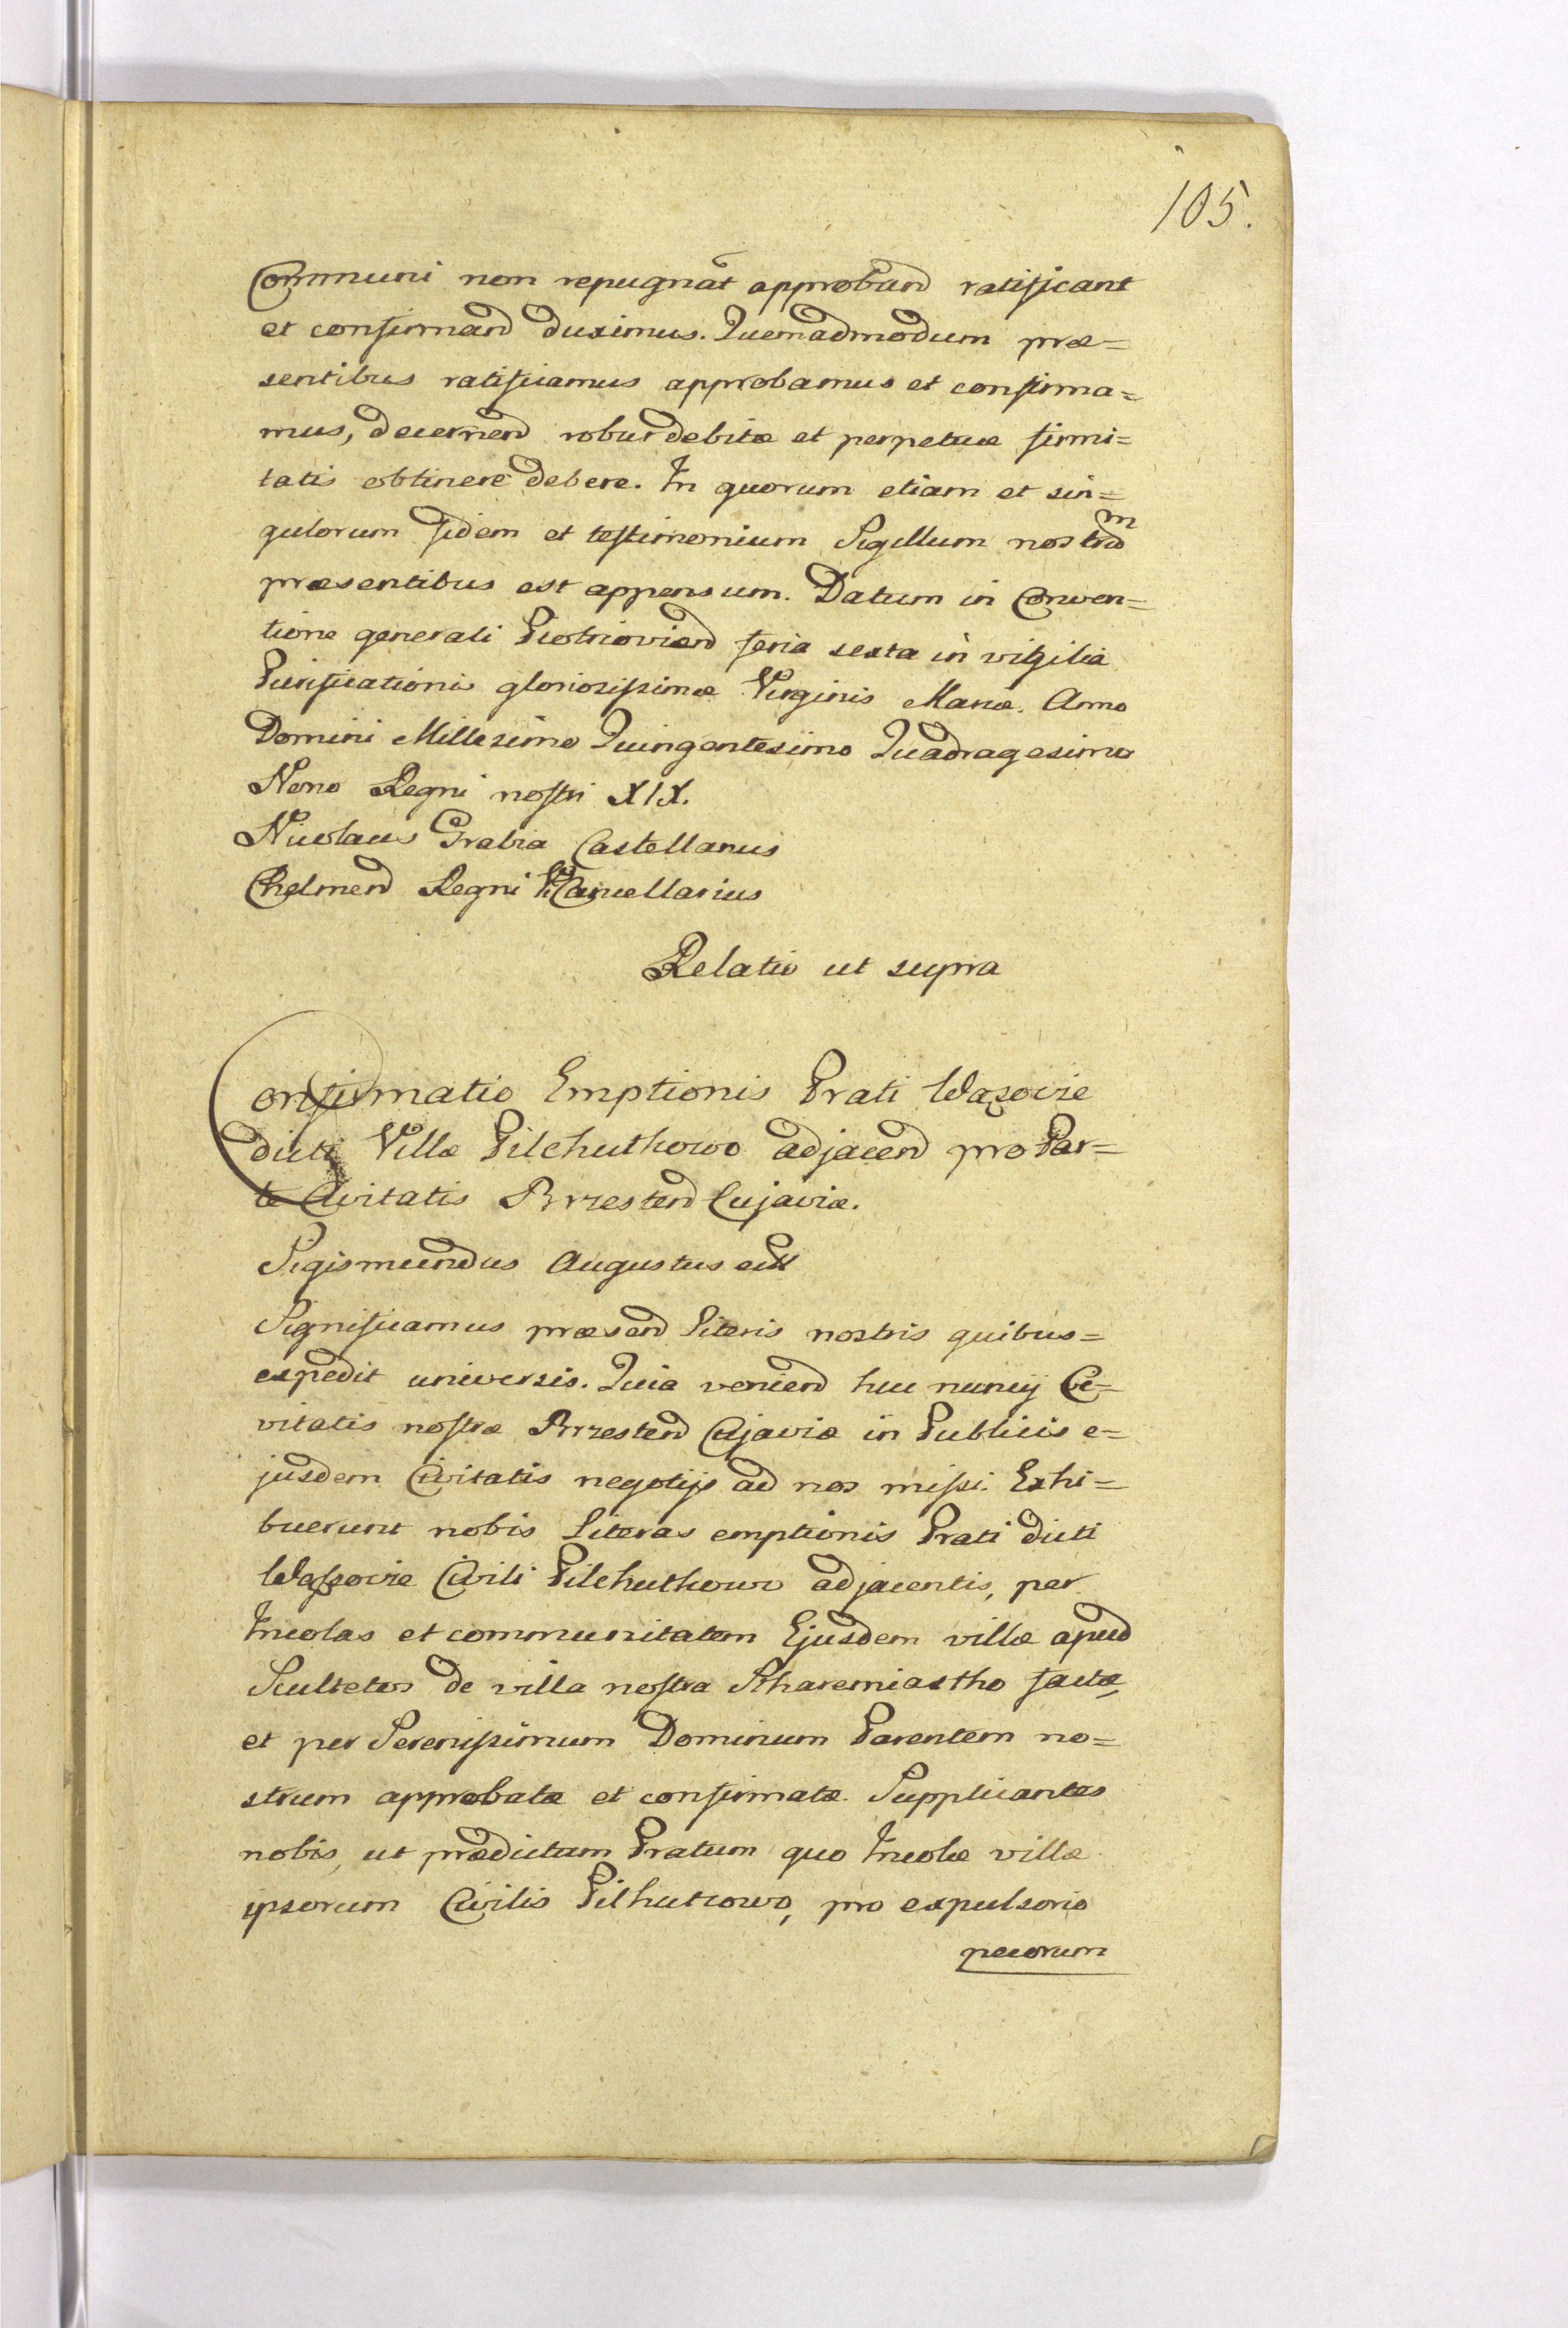 105.
Communi non repugnāt approband ratificant
et confirmand duximus. Quemadmodum præ=
sentibus ratificamus approbamus et confirma=
mus, decernend robur debitæ et perpetuæ firmi=
tatis obtinere debere. In quorum etiam et sin=
gulorum fidem et testimonium Sigillum nostrum
præsentibus est appensum. Datum in Conven=
tione generali Piotrioviend feria sexta in vigilia
Purificationis gloriosissimæ Virginis Mariæ. Anno
Domini Millesimo Quingentesimo Quadragesimo
Nono Regni nostri XIX.
Nicolaus Grabia Castellanus
Chelmend Regni Vice Cancellarius
Relatio ut supra
Confirmatio Emptionis Prati Wazovie
dicti Villæ Pilchuthowo adjacend pro Par=
te Civitatis Brzestend Cujaviæ.
Sigismundus Augustus etc
Significamus præsend literis nostris quibus=
expedit universis. Quia veniend huc nuncij Ci=
vitatis nostræ Brzestend Cujaviæ in Publicis e=
jusdem Civitatis negotijs ad nos missi. Exhi=
buerunt nobis literas emptionis Prati dicti
Wassovie Civili Pilchuthowo adjacentis, per
Incolas et communitatem Ejusdem villæ apud
Scultetos de villa nostra Stharemiastho factæ,
et per Serenissimum Dominum Parentem no=
strum approbatæ et confirmatæ Supplicantes
nobis, ut prædictam Pratum quo Incolæ villæ
ipsorum Civilis Pilhutcowo, pro expulsorio
pecorum